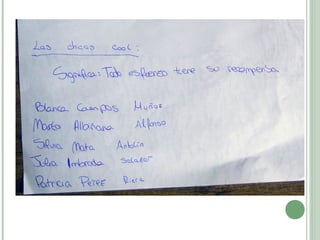 Las chicas cool:
Significa: Todo esfuerzo tiene su recompensa
Blanca Campos Muñoz
María Allanana Alfonso
Silvia Mata Antolin
Julia Imbroda Salazar
Patricia Pérez Riera